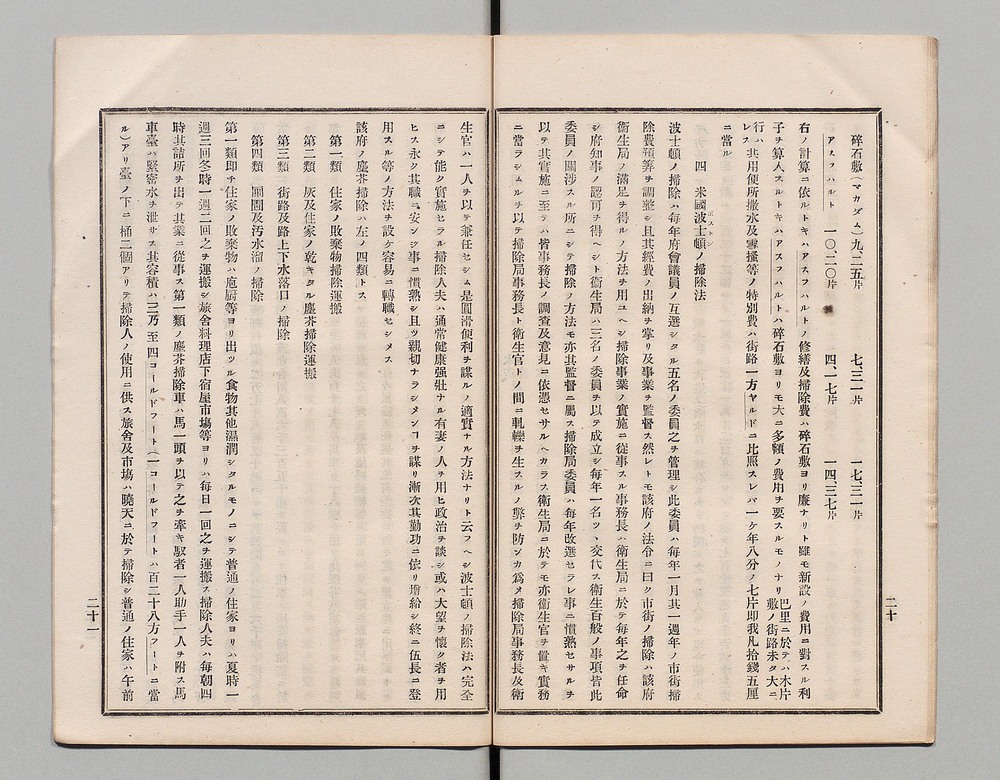 碎石敷(マカダム)九、二五片 七三一片 一七三一片
アスフハルト 一〇、二〇片 四、一七片 一四、三七片
右ノ計算ニ依ルトキハアスフハルトノ修繕及掃除費ハ碎石敷ヨリ廉ナリト雖モ新設ノ費用ニ對スル利
子ヲ算入スルトキハアスフハルトハ碎石敷ヨリモ大ニ多額ノ費用ヲ要スルモノナリ巴里ニ於テハ木片敷ノ街路未タ大ニ
行ハレス共用便所撒水及雪搔等ノ特別費ハ街路一方ヤルドニ比照スレバ一ケ年八分ノ七片即我凡拾錢五厘
ニ當ル
四 米國波士頓ノ掃除法
ボストン
波士頓ノ掃除ハ每年府會議員ノ互選シタル五名ノ委員之ヲ管理シ此委員ハ每年一月其一週年ノ市街掃
除費預筭ヲ調整シ且其經費ノ出納ヲ掌リ及事業ヲ監督ス然レトモ該府ノ法令ニ曰ク市街ノ掃除ハ該府
衞生局ノ滿足ヲ得ルノ方法ヲ用ユヘシ掃除事業ノ實施ニ從事スル事務長ハ衞生局ニ於テ每年之ヲ任命
シ府知事ノ認可ヲ得ヘシト衞生局ハ三名ノ委員ヲ以テ成立シ每年一名ツヽ交代ス衞生百般ノ事項皆此
委員ノ關涉スル所ニシテ掃除ノ方法モ亦其監督ニ屬ス掃除局委員ハ每年改選セラレ事ニ慣熟セサルヲ
以テ其實施ニ至テハ皆事務長ノ調査及意見ニ依憑セサルヘカラス衞生局ニ於テモ亦衞生官ヲ置キ實務
ニ當ラシムルヲ以テ掃除局事務長ト衞生官トノ間ニ軋轢ヲ生スルノ弊ヲ防ンカ爲メ掃除局事務長及衞
二十
生官ハ一人ヲ以テ兼任セシム是圓滑便利ヲ謀ルノ適實ナル方法ナリト云フヘシ波士頓ノ掃除法ハ完全
ニシテ能ク實施セラル掃除人夫ハ通常健康强壯ナル有妻ノ人ヲ用ヒ政治ヲ談シ或ハ大望ヲ懷ク者ヲ用
ヒス永ク其職ニ安ンジ事ニ慣熟シ且ツ親切ナラシメンヿヲ謀リ漸次其勤功ニ依リ增給シ終ニ伍長ニ登
用スル等ノ方法ヲ設ケ容易ニ轉職セシメス
該府ノ塵芥掃除ハ左ノ四類トス
第一類 住家ノ敗棄物掃除運搬
第二類 灰及住家ノ乾キタル塵芥掃除運搬
第三類 街路及路上下水落口ノ掃除
第四類 圊圂及汚水溜ノ掃除
第一類即チ住家ノ敗棄物ハ庖厨等ヨリ出ツル食物其他濕潤シタルモノニシテ普通ノ住家ヨリハ夏時一
週三回冬時一週二回之ヲ運搬シ旅舍料理店下宿屋市場等ヨリハ每日一回之ヲ運搬ス掃除人夫ハ每朝四
時其詰所ヲ出テ其業ニ從事ス第一類ノ塵芥掃除車ハ馬一頭ヲ以テ之ヲ牽キ馭者一人助手一人ヲ附ス馬
車臺ハ緊密水ヲ泄サス其容積ハ三乃至四コールドフート(一コールドフートハ百二十八方フートニ當
ル)アリ臺ノ下ニ桶二個アリテ掃除人ノ使用ニ供ス旅舍及市場ハ曉天ニ於テ掃除シ普通ノ住家ハ午前
二十一